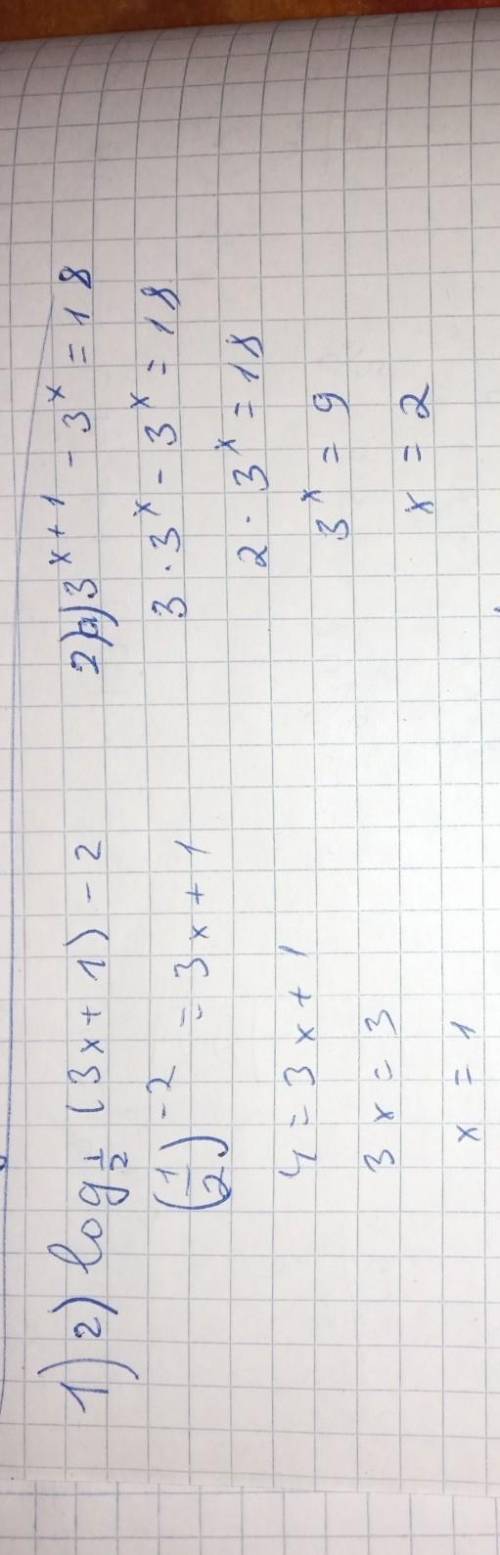 1) 2) log 1/2 (3x + 1) - 2
(1/2)^-2 = 3x + 1
4 = 3x + 1
3x = 3
x = 1
2) a) 3^x+1 - 3^x = 18
3 · 3^x - 3^x = 18
2 · 3^x = 18
3^x = 9
x = 2